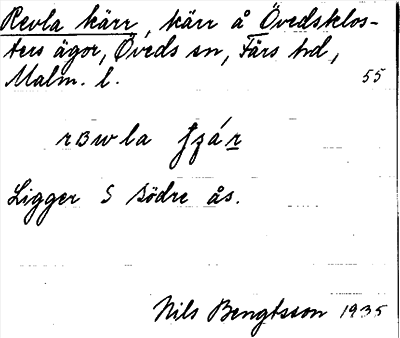 Revla kärr, kärr å Övedsklos-
ters ägor, Öveds sn, Färs hd,
Malm. l. 55
rɜwla ʃzár
Ligger S Södre ås.
Nils Bengtsson 1935